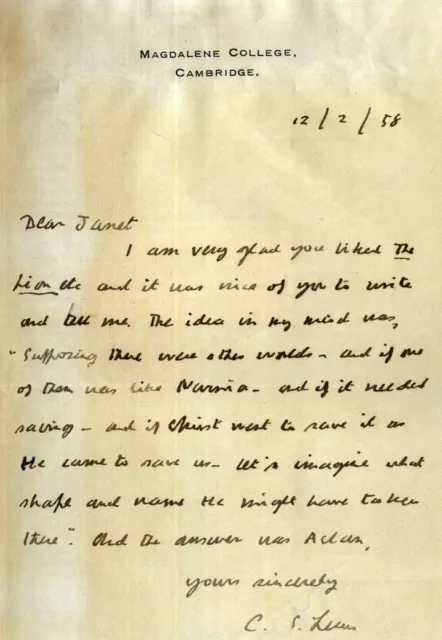 MAGDALENE COLLEGE,
CAMBRIDGE.
12/2/58
Dear Janet
I am very glad you liked The
Lion etc and it was nice of you to write
and tell me. The idea in my mind was,
"Supposing there were other worlds – and if one
of them was like Narnia – and if it needed
saving – and if Christ went to save it as
He came to save us – let's imagine what
shape and name He might have taken
there". And the answer was Aslan.
yours sincerely
C. S. Lewis